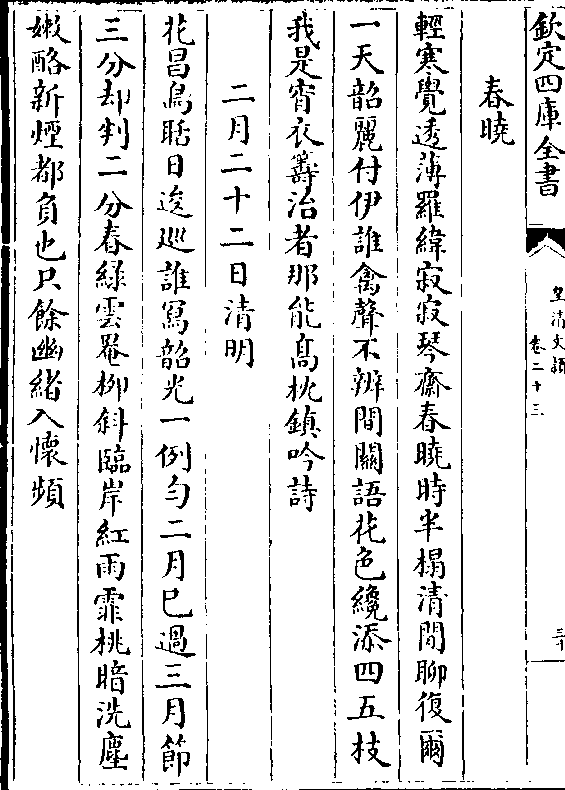 欽定四庫全書
皇清文穎
卷二十三
三十
春曉
輕寒覺透薄羅緯寂寂琴齋春曉時半榻清閒聊復爾
一天韶麗付伊誰禽聲不辨間關語花色纔添四五枝
我是宵衣籌治者那能高枕鎮吟詩
二月二十二日清明
花昌鳥聒日逡巡誰寫韶光一例勻二月已過三月節
三分却判二分春綠雲罨栁斜臨岸紅雨霏桃暗洗塵
嫩酪新煙都負也只餘幽緒入懷頻